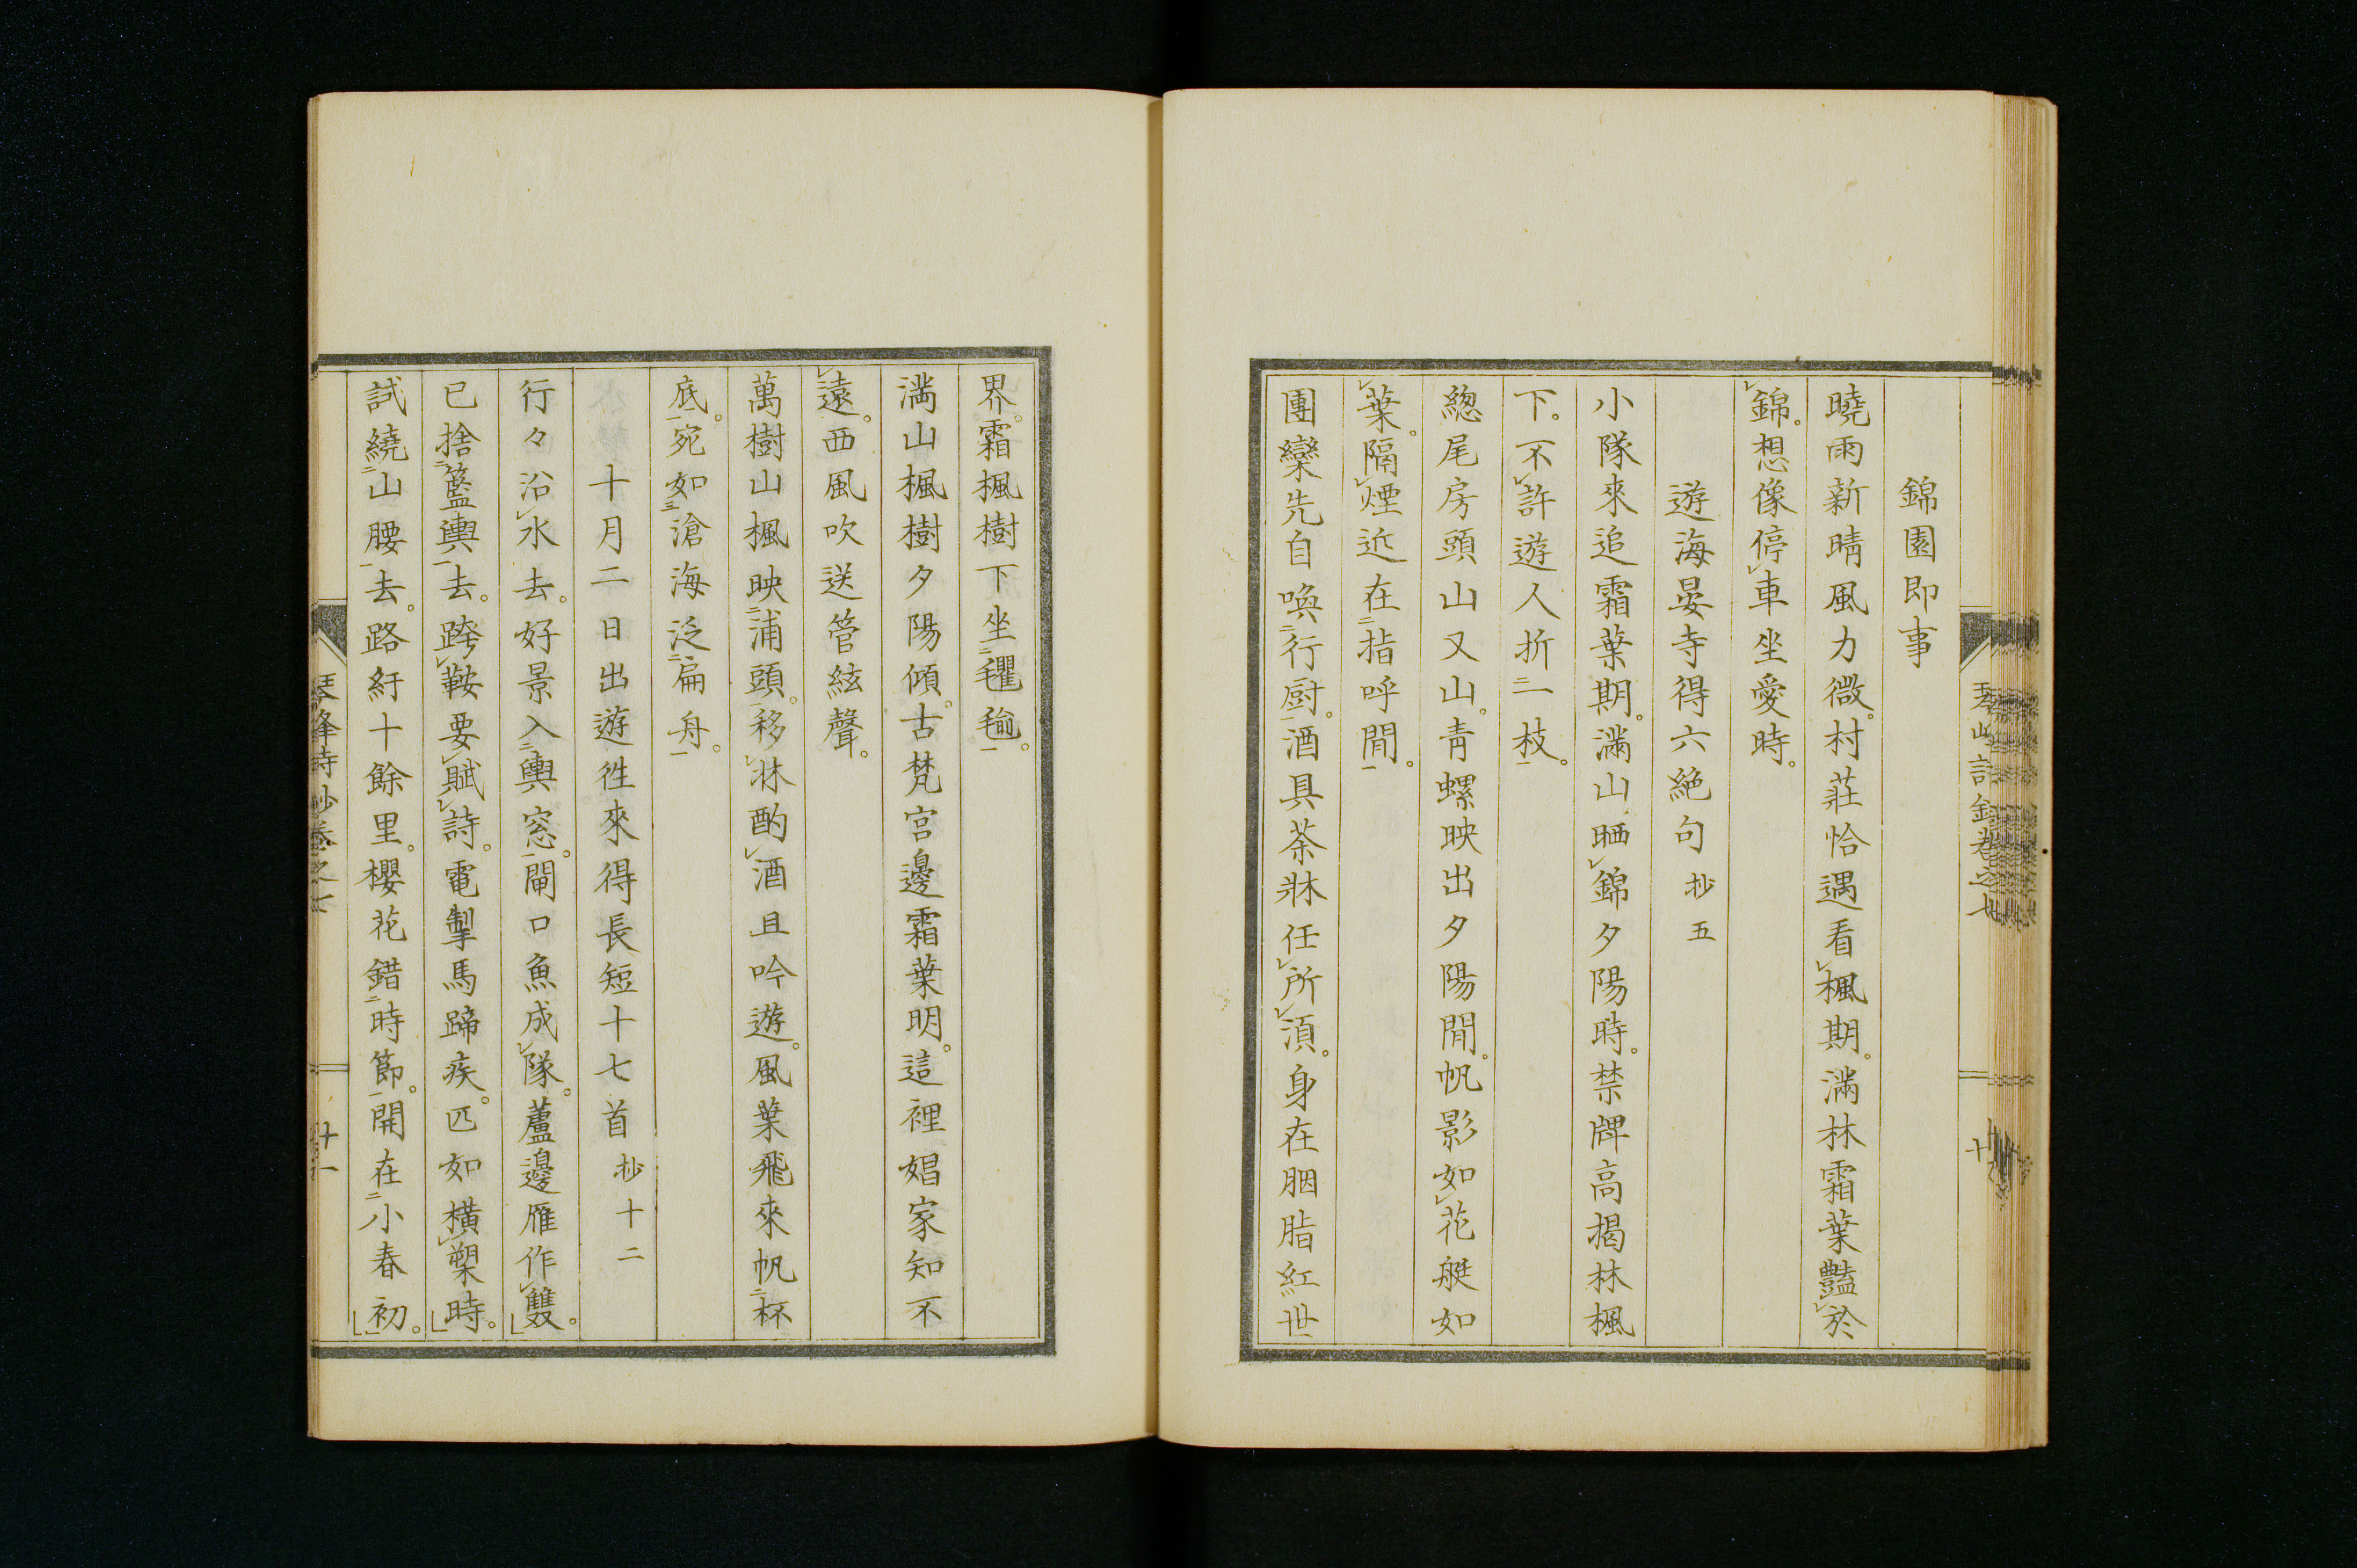 錦園即事
曉雨新晴風力微。村莊恰遇看楓期。滿林霜葉豔於
錦。想像停車坐愛時。
遊海晏寺得六絶句 抄五
小隊來追霜葉期。滿山晒錦夕陽時。禁牌高揭林楓
下。不許遊人折一枝。
總尾房頭山又山。青螺映出夕陽閒。帆影如花艇如
葉。隔煙近在指呼間。
團欒先自喚行厨。酒具茶牀任所須。身在胭脂紅世
界。霜楓樹下坐氍毹。
滿山楓樹夕陽傾。古梵宮邊霜葉明。這裡娼家知不
遠。西風吹送管絃聲。
萬樹山楓映浦頭。移牀酌酒且吟遊。風葉飛來帆杯
底。宛如滄海泛扁舟。
十月二日出遊徃來得長短十七首 抄十二
行々沿水去。好景入輿窓。閘口魚成隊。蘆邊雁作雙。
已捨籃輿去。跨鞍要賦詩。電掣馬蹄疾。匹如橫槊時。
試繞山腰去。路紆十餘里。櫻花錯時節。開在小春初。
琴峰詩鈔卷之七
十一